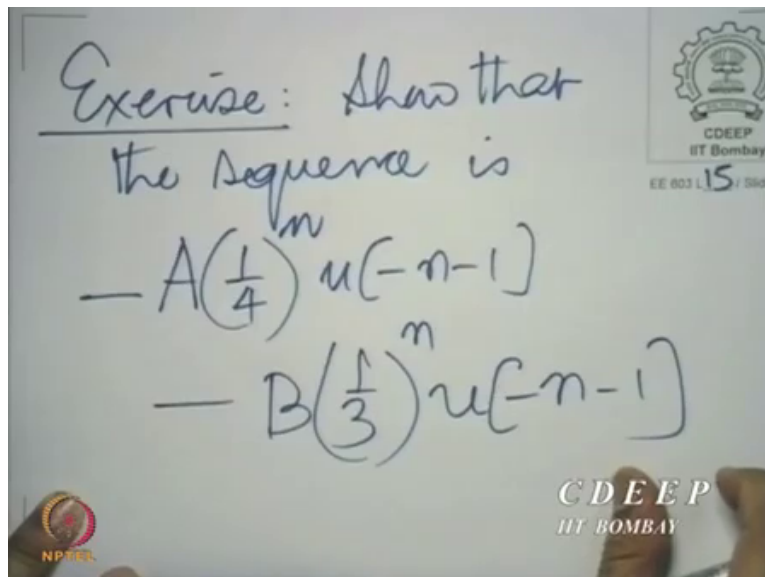 Exercise: Show that
the sequence is
− A(1/4)^n u[-n-1]
− B(1/3)^n u[-n-1]
CDEEP
IIT Bombay
EE 603 L 15 / Slid
CDEEP
IIT BOMBAY
NPTEL